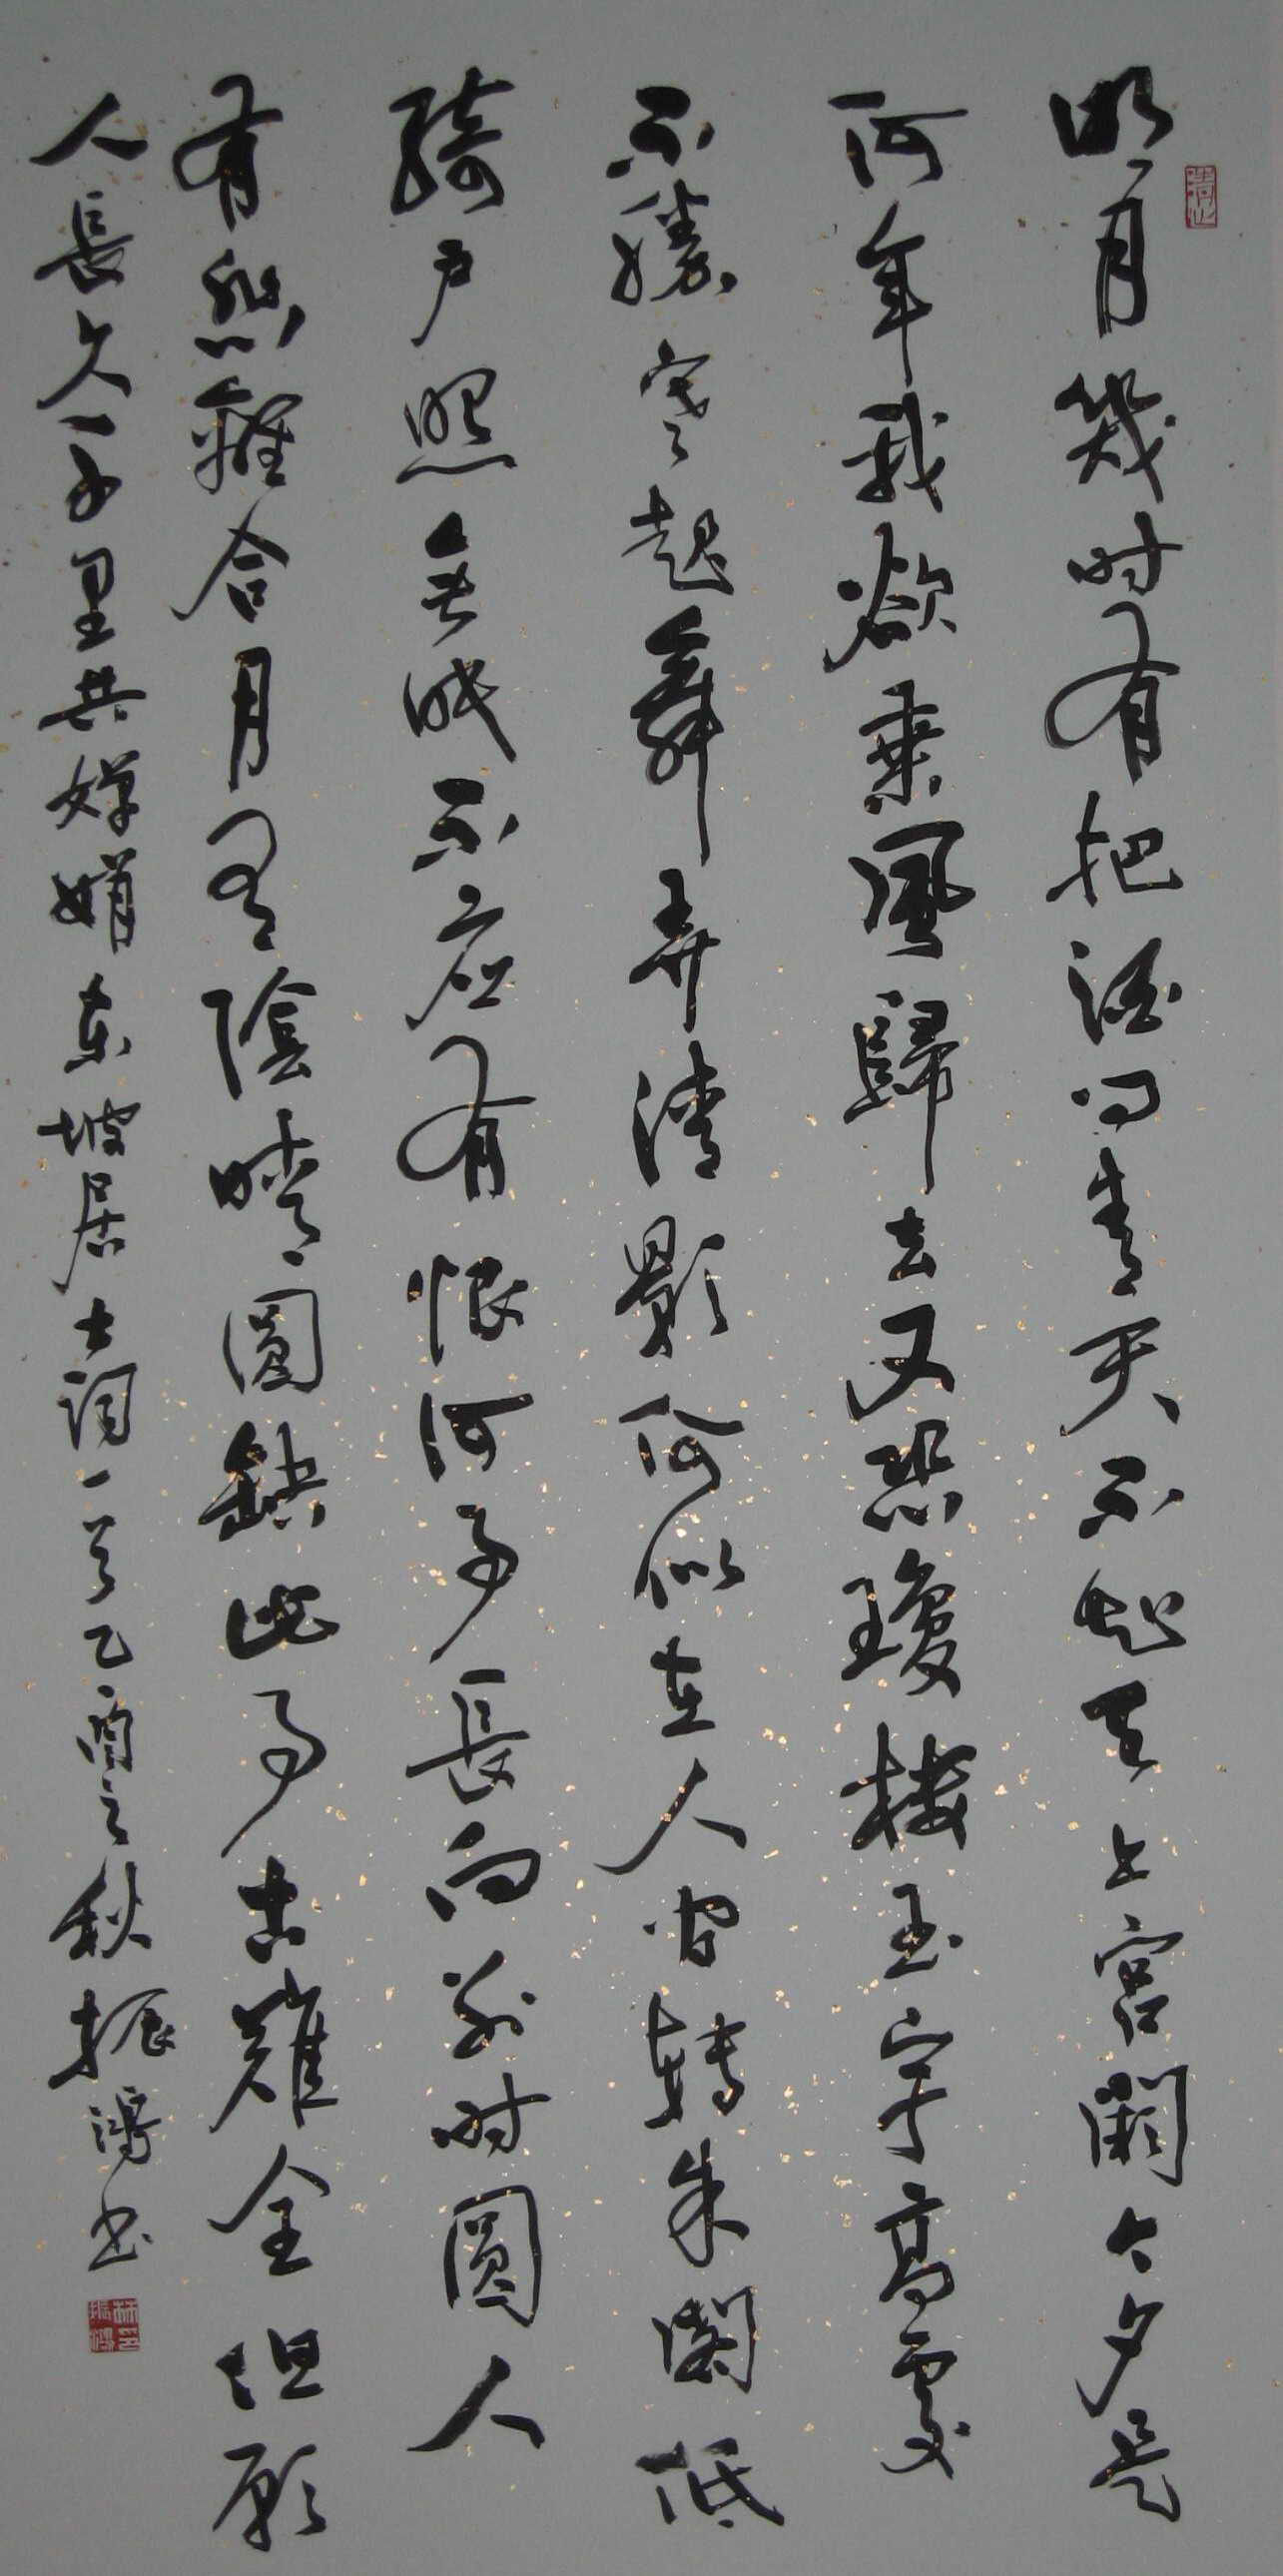 明月幾时有把酒问青天不知天上宮闕今夕是
何年我欲乘風歸去又恐瓊樓玉宇高處
不勝寒起舞弄清影何似在人間轉朱閣低
綺户照無眠不應有恨何事長向别时圓人
有悲離合月有陰晴圓缺此事古難全但願
人長久千里共嬋娟東坡居士詞一首乙酉之秋振鴻书
林印振鴻